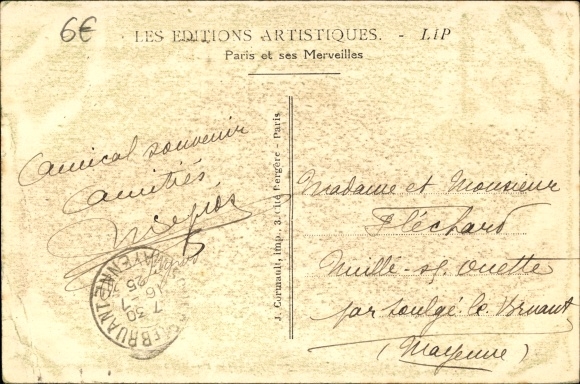 6€
LES EDITIONS ARTISTIQUES. - LIP
Paris et ses Merveilles
Amical souvenir
Amitiés
J. Cormault, imp., 3, Cité Bergère - Paris
Madame et Monsieur
Fléchard
Nuillé-s/-Ouette
par Soulgé-le-Bruant
(Mayenne)
LE BRUANT
MAYENNE
7 30
16-7
25